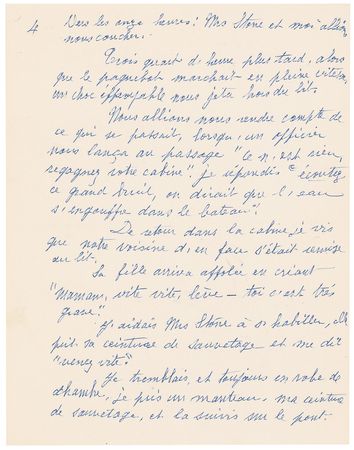 4
Vers les onze heures; Mrs Stone et moi allions
nous coucher.
Trois quart d'heure plus tard, alors
que le paquebot marchait en pleine vitesse,
un choc effroyable nous jeta hors du lit.
Nous allions nous rendre compte de
ce qui se passait, lorsqu'un officier
nous lança au passage "Ce n'est rien,
regagnez votre cabine". Je répondis "écoutez
ce grand bruit, on dirait que l'eau
s'engouffre dans le bateau".
De retour dans la cabine, je vis
que notre voisine d'en face s'était remise
au lit.
Sa fille arriva affolée en criant
"Maman, vite vite, lève-toi c'est très
grave".
J'aidais Mrs Stone à s'habiller, elle
prit sa ceinture de sauvetage et me dit
"venez vite".
Je tremblais, et toujours en robe de
chambre, je pris un manteau, ma ceinture
de sauvetage, et la suivis sur le pont.